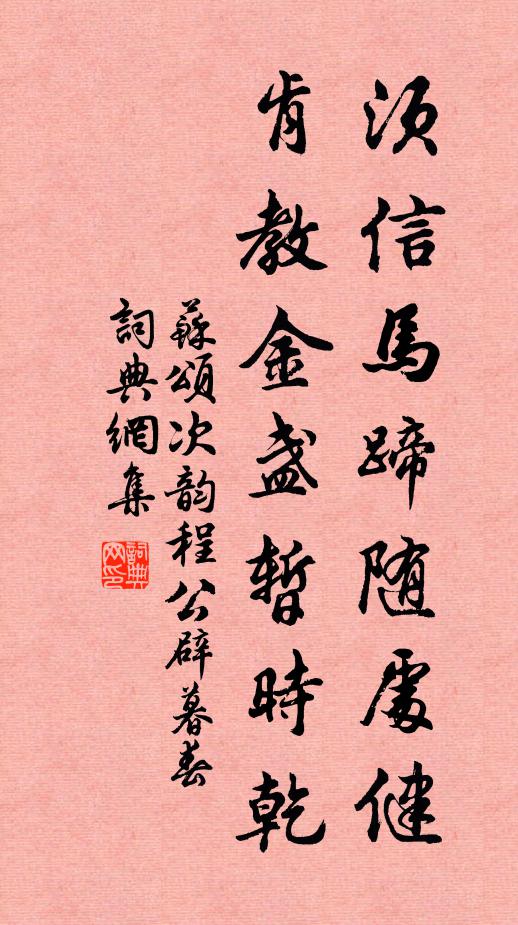 须信馬蹄随處健
肯教金盏暫時乾
蘇頌次韵程公辟暮春
詞典網集
詞典網印